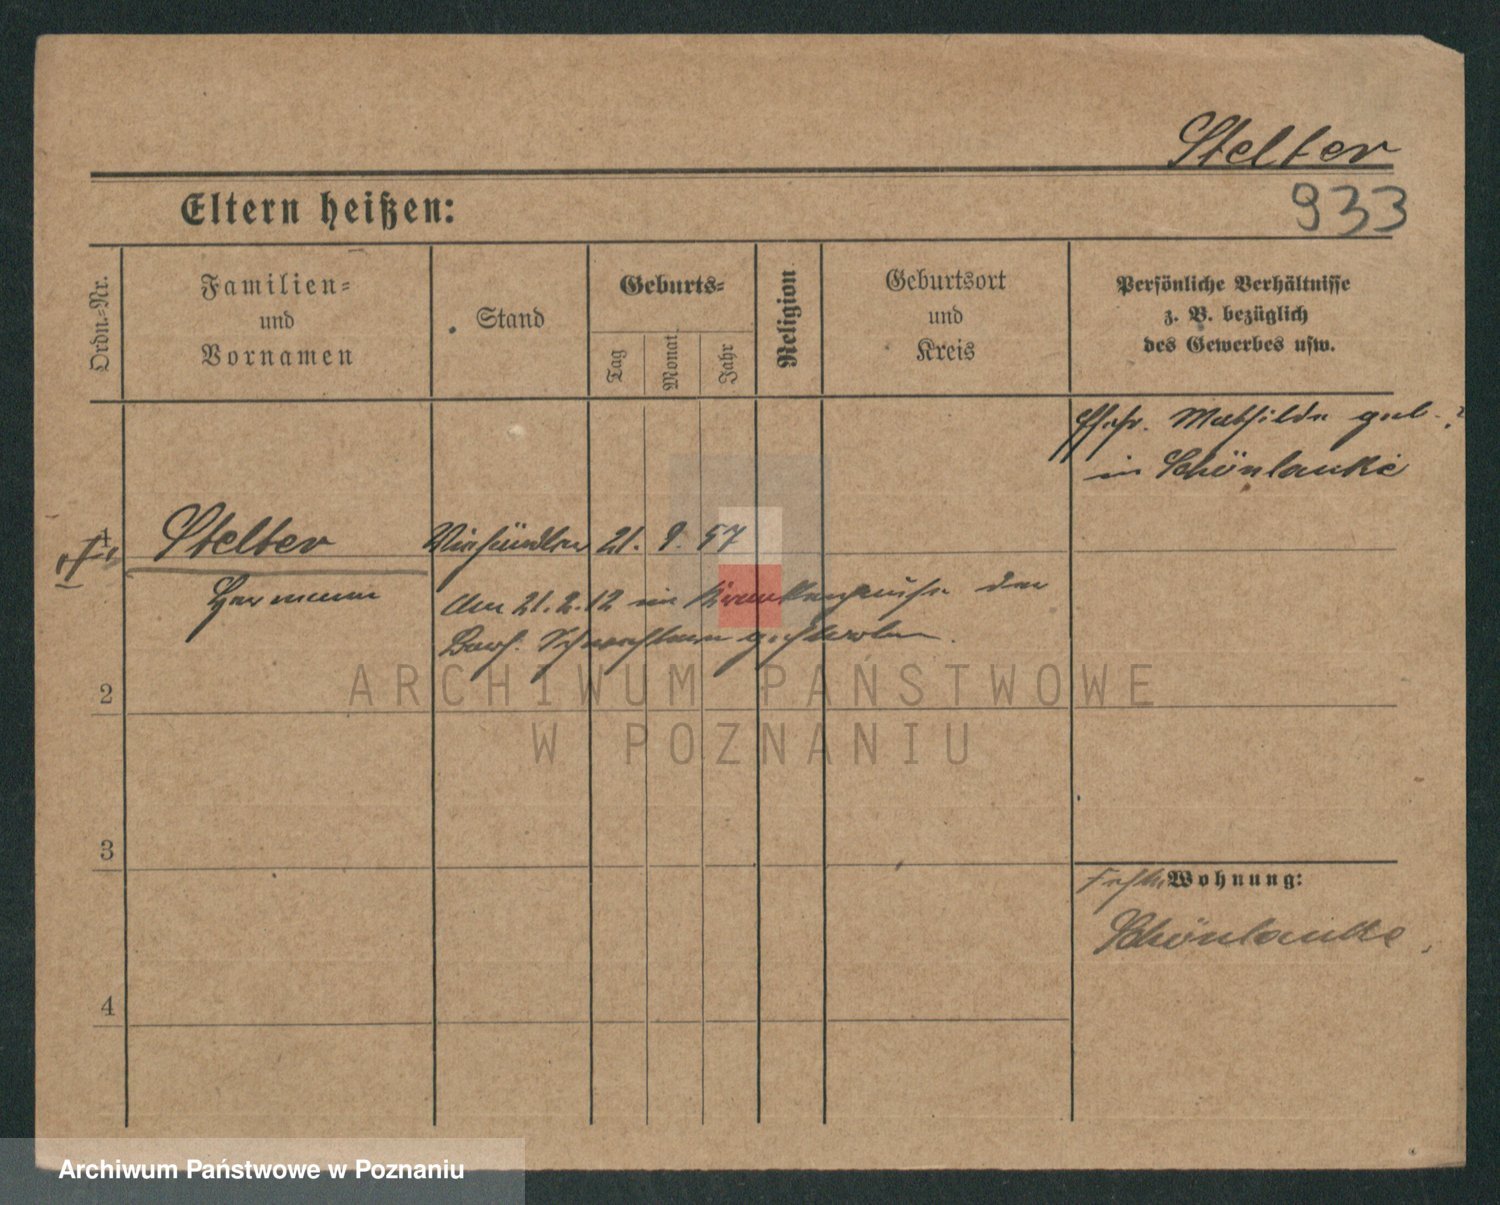 Stelter
933
Eltern heißen:
Ordn.-Nr.
Familien-
und
Vornamen
Stand
Geburts-
Tag
Monat
Jahr
Religion
Geburtsort
und
Kreis
Persönliche Verhältnisse
z. B. bezüglich
des Gewerbes usw.
Ehefr. Mathilde geb. ?
in Schönlanke
1
Stelter
Viehhändler
21. 9. 57
Hermann
Am 21.2.12 im Krankenhause der
Barmh. Schwestern gestorben.
2
3
4
Wohnung:
Schönlanke
ARCHIWUM PAŃSTWOWE
W POZNANIU
Archiwum Państwowe w Poznaniu